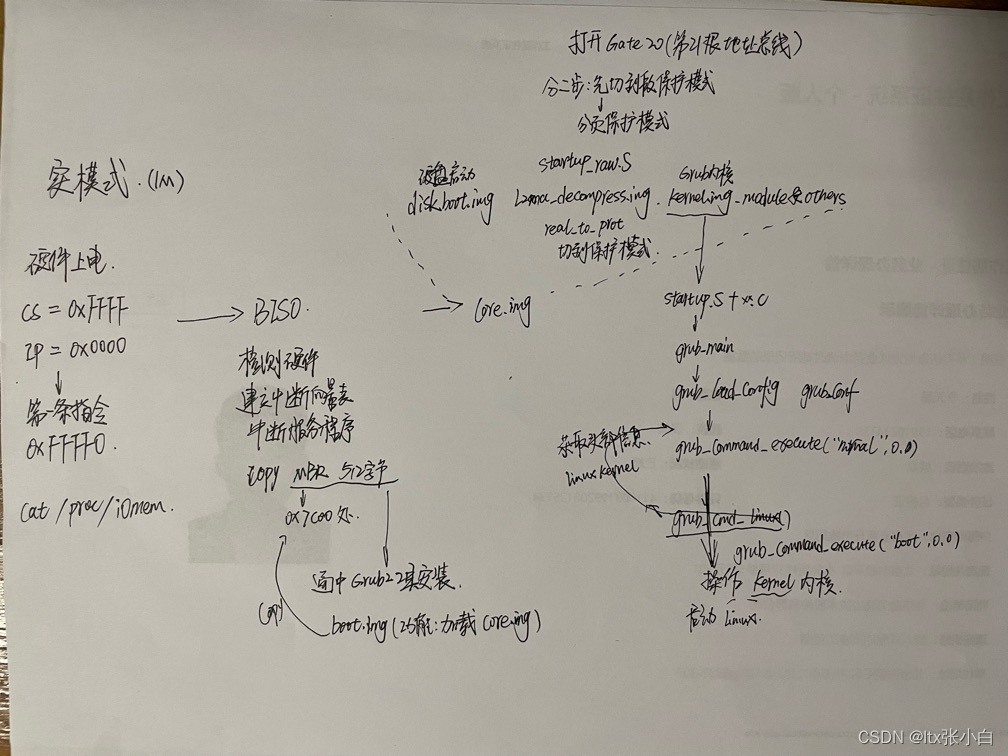 实模式.(1M)
硬件上电.
CS = 0xFFFF
IP = 0x0000
第一条指令
0xFFFF0.
cat /proc/iomem.
BISO.
检测硬件
建立中断向量表
中断服务程序
copy MBR 512字节
0x7C00处.
通过Grub2工具安装.
copy
boot.img (功能:加载core.img)
打开Gate20(第21根地址总线)
分二步:先切到段保护模式
分页保护模式
硬盘启动
diskboot.img
startup_raw.S
Lzma_decompress.img.
real_to_prot
切到保护模式.
Grub内核
kernel.img. module & others
core.img
startup.S + xx.C
grub_main
grub_load_config grub.conf
grub_command_execute("normal",0,0)
获取头部信息.
linux kernel
grub_cmd_linux()
grub_command_execute("boot",0,0)
操作 kernel 内核.
启动 linux.
CSDN @ltx张小白